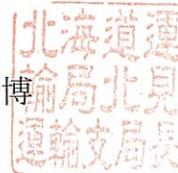 博
北海道運
輸局北見
運輸支局長